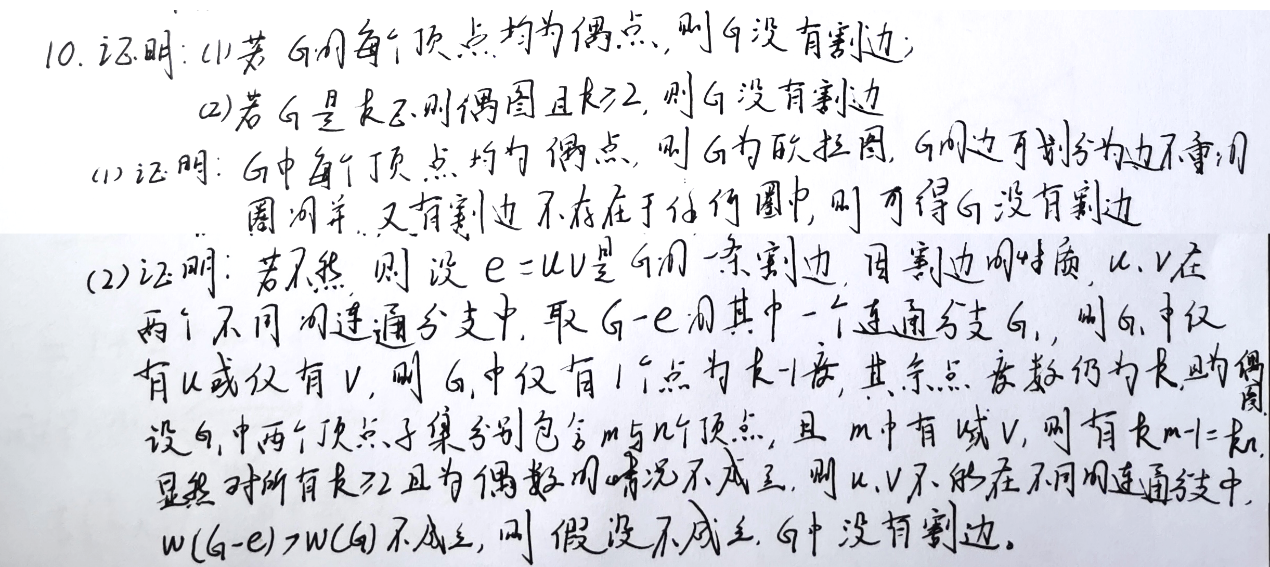 10. 证明: (1) 若 G的每个顶点均为偶点, 则G没有割边;
(2) 若 G 是 k正则偶图且k≥2, 则G没有割边
(1) 证明: G中每个顶点均为偶点, 则G为欧拉图, G的边可划分为边不重的
圈的并, 又有割边不存在于任何圈中, 则可得G没有割边
(2) 证明: 若不然, 则设 e=uv是G的一条割边, 因割边的性质, u、v在
两个不同的连通分支中, 取G-e的其中一个连通分支G₁, 则G₁中仅
有u或仅有v, 则G₁中仅有1个点为k-1度, 其余点度数仍为k, 且为偶图.
设G₁中两个顶点子集分别包含m与n个顶点, 且m中有u或v, 则有km-1=kn,
显然对所有k≥2且为偶数的情况不成立, 则u、v不能在不同的连通分支中,
w(G-e)>w(G)不成立, 则假设不成立. G中没有割边。